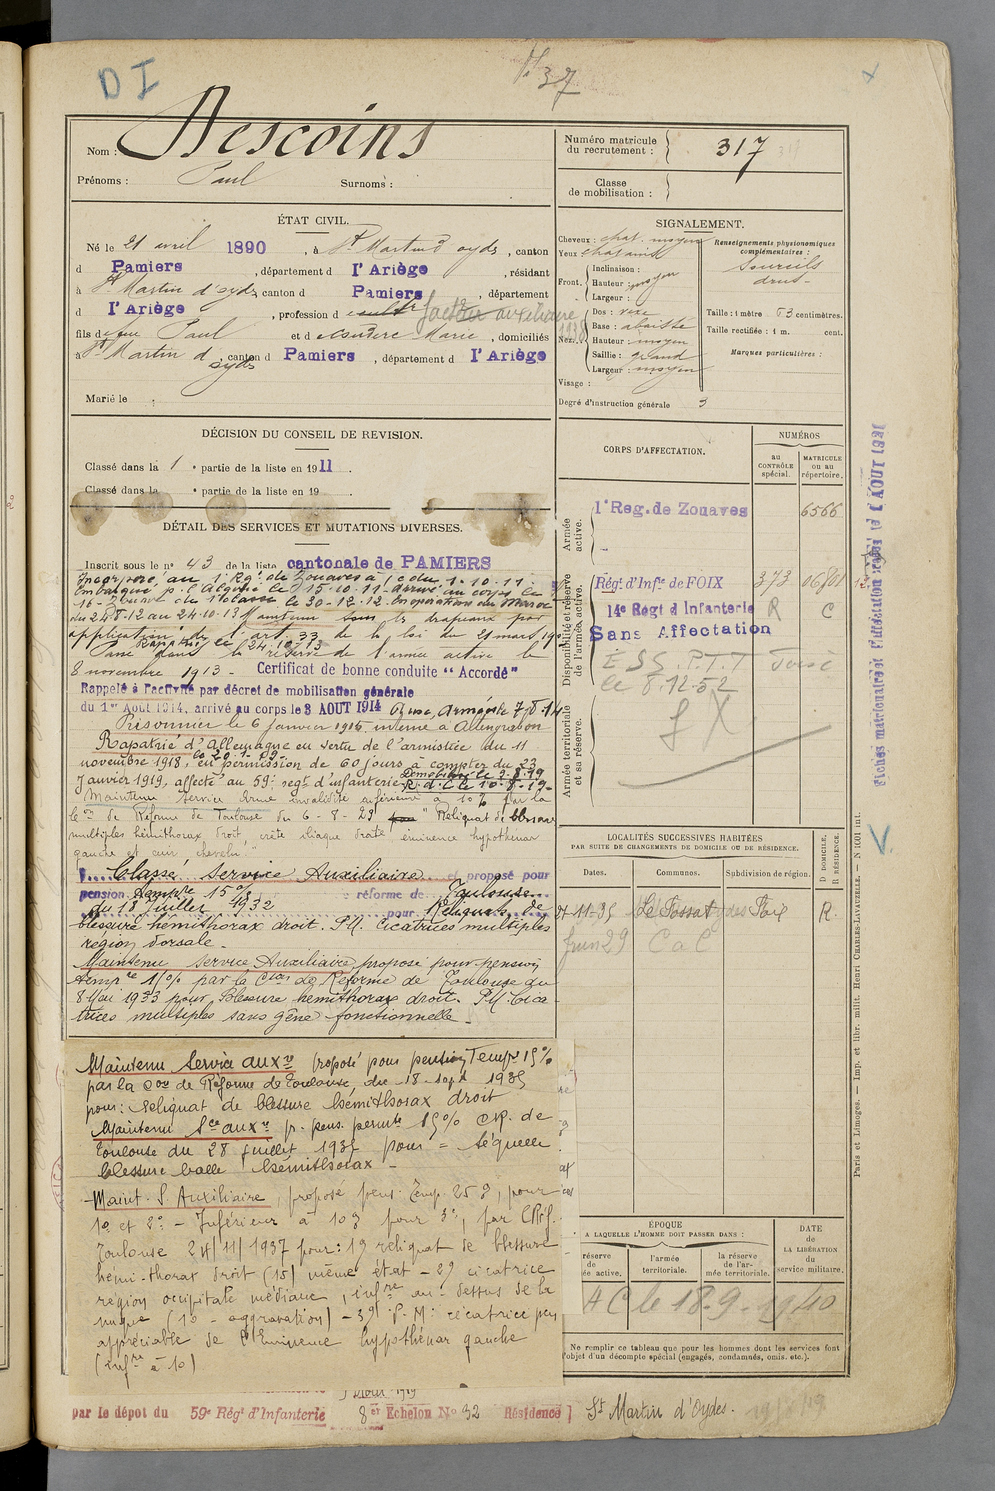 D I
37
Nom : Descoins
Prénoms : Paul Surnoms :
Numéro matricule du recrutement : 317
Classe de mobilisation :
ÉTAT CIVIL.
Né le 21 avril 1890, à St Martin d'oyds, canton
d Pamiers, département d l'Ariège, résidant
à St Martin d'oyds, canton d Pamiers, département
d l'Ariège, profession d cultr facteur auxiliaire
fils de feu Paul et d Marie, domiciliés
à St Martin d oyds, canton d Pamiers, département d l'Ariège
Marié le
SIGNALEMENT.
Cheveux : chat. moyen
Yeux chatains
Front. Inclinaison :
Hauteur : moyen
Largeur :
Nez. Dos : vexe
Base : abaissée
Hauteur : moyen
Saillie : grand
Largeur : moyen
Visage :
Degré d'instruction générale 3
Renseignements physionomiques complémentaires :
Sourcils
drus
Taille : 1 mètre 73 centimètres.
Taille rectifiée : 1 m. cent.
Marques particulières :
DÉCISION DU CONSEIL DE REVISION.
Classé dans la 1e partie de la liste en 1911.
Classé dans la e partie de la liste en 19
DÉTAIL DES SERVICES ET MUTATIONS DIVERSES.
Inscrit sous le no 43 de la liste cantonale de PAMIERS
Incorporé au 1 Rgt de Zouaves à c du 1-10-11.
Embarqué p. l'Algérie le 15-10-11 - Arrivé au corps le
16 - Zouave de 1e classe le 30-12-12. En opérations au Maroc
du 24-8-12 au 24-10-13 Maintenu sous les drapeaux par
application de l'art. 33 de la loi du 21 mars 190
Rapatrié le 24.10.13
Passé dans la réserve de l'armée active le
8 novembre 1913 - Certificat de bonne conduite "Accordé"
Rappelé à l'activité par décret de mobilisation générale
du 1er Août 1914, arrivé au corps le 3 AOUT 1914 Aux Armées le 7-8-14
Prisonnier le 6 janvier 1916 interné à
Rapatrié d'Allemagne en vertu de l'armistice du 11
novembre 1918, en permission de 60 jours à compter du 23
Janvier 1919, affecté au 59e régt d'infanterie Démobilisé le 9-8-19
R. d. C le 10-8-19-
Maintenu service armé invalidité inférieure à 10% par la
con de Réforme de Toulouse du 6-8-23 "Reliquat de blessure
multiples hémithorax droit, crête iliaque droite, éminence hypothénar
gauche et cuir chevelu."
Classé service Auxiliaire et proposé pour
pension tempre 15% réforme de Toulouse
du 18 Juillet 1932 pour Reliquats de
blessure hémithorax droit. P.M. Cicatrices multiples
région dorsale.
Maintenu service Auxiliaire, proposé pour pension
tempre 15% par la Cion de Réforme de Toulouse du
8 Mai 1933 pour Blessure hémithorax droit. P.M. Cica-
trices multiples sans gêne fonctionnelle.
Maintenu Service auxre Proposé pour pension Tempre 15%
par la Con de Réforme de Toulouse, du 18 sept 1935
pour : reliquat de blessure hémithorax droit
Maintenu Sce auxre p. pens. permte 15% CR. de
Toulouse du 28 juillet 1935 pour = séquelle
blessure balle hémithorax -
- Maint. S. Auxiliaire, proposé pens. Temp. 25%, pour
1o et 2o - Inférieur à 10% pour 3o, par CRef.
Toulouse 24/11/1937 pour : 1o reliquat de blessure
hémi-thorax droit (15) même état - 2o cicatrice
région occipitale médiane, infre au-dessus de la
nuque (10 - aggravation) - 3o P.M. cicatrice peu
appréciable de l'Eminence hypothénar gauche
(infre à 10)
par le dépot du 59e Régt d'Infanterie 8e Echelon No 32 Résidence St Martin d'Oydes.
CORPS D'AFFECTATION.
NUMÉROS
au CONTRÔLE spécial.
MATRICULE ou au répertoire.
Armée active.
1er Reg. de Zouaves 6566
Disponibilité et réserve de l'armée active.
Régt d'Infie de FOIX 373
14e Régt d'Infanterie R C
Sans Affectation
E SS. P.T.T Foix
le 8.12.52
Armée territoriale et sa réserve.
Fiches matriculaires d'affectation 1 AOUT 1931
LOCALITÉS SUCCESSIVES HABITÉES
PAR SUITE DE CHANGEMENTS DE DOMICILE OU DE RÉSIDENCE.
Dates. Communes. Subdivision de région.
D DOMICILE, R RÉSIDENCE.
-11-35 Le Fossat Foix R.
juin 29 C a C
V.
ÉPOQUE
A LAQUELLE L'HOMME DOIT PASSER DANS :
réserve de ée active.
l'armée territoriale.
la réserve de l'armée territoriale.
DATE DE LA LIBÉRATION du service militaire.
A C le 18-9-1940
Ne remplir ce tableau que pour les hommes dont les services font l'objet d'un décompte spécial (engagés, condamnés, omis. etc.).
Paris et Limoges. — Imp. et libr. milit. Henri CHARLES-LAVAUZELLE. — N 1001 int.